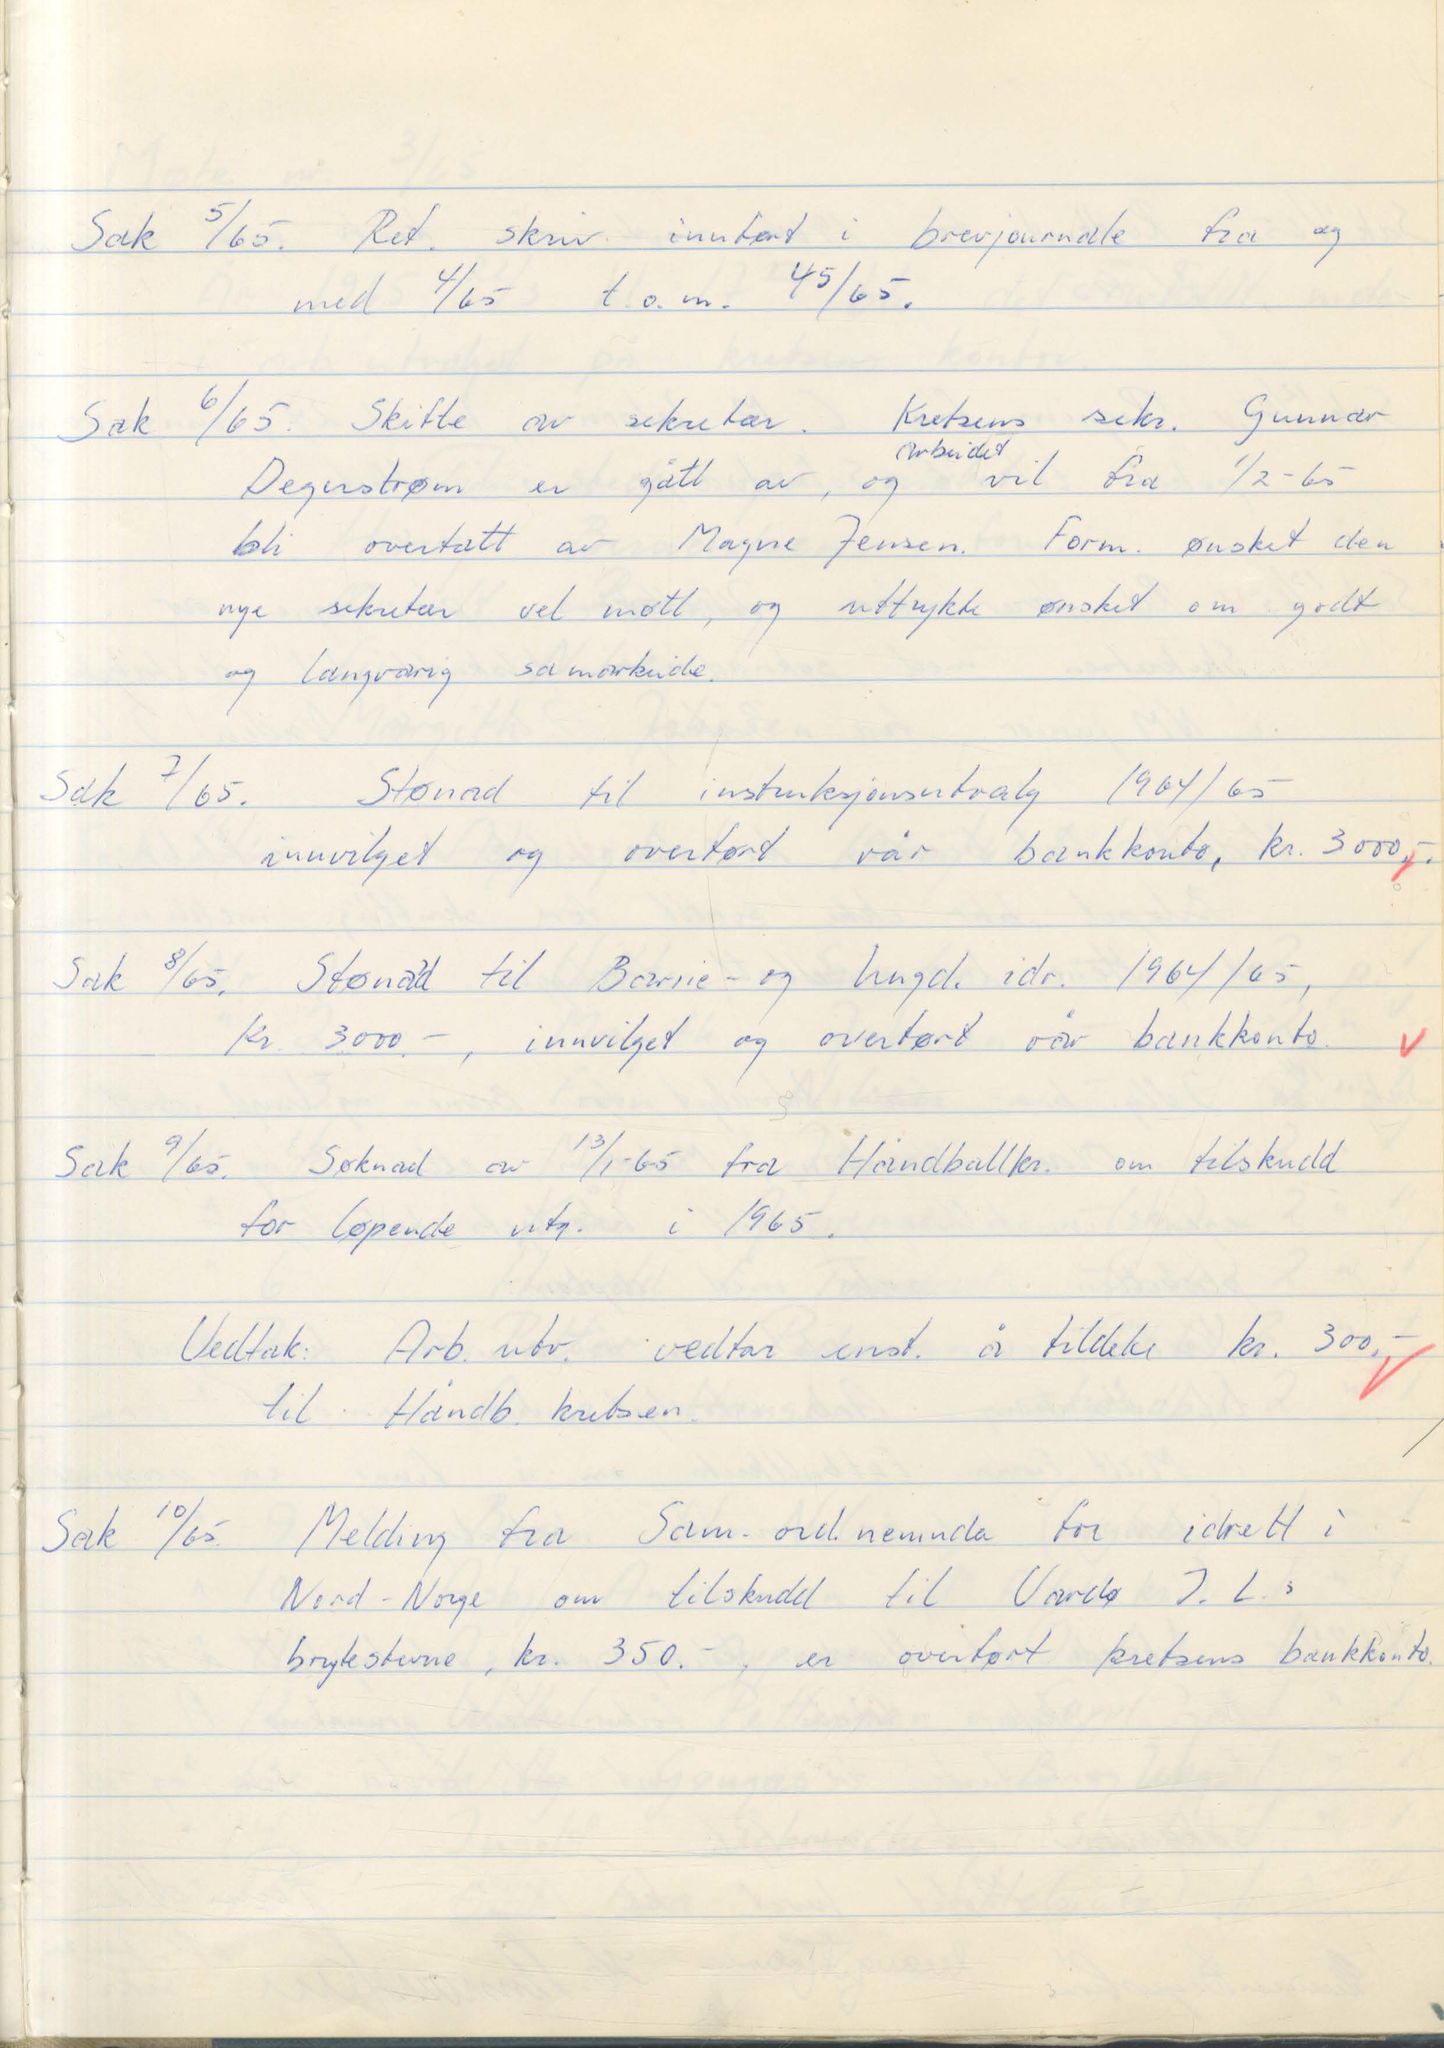 Sak 5/65. Ref. skriv innført i brevjournale fra og
med 4/65 t.o.m. 45/65.
Sak 6/65. Skifte av sekretær. Kretsens sekr. Gunnar
arbeidet
Degerstrøm er gått av, og vil fra 1/2-65
bli overtatt av Magne Jensen. Form. ønsket den
nye sekretær vel møtt, og uttrykte ønsket om godt
og langvarig samarbeide.
Sak 7/65. Stønad til instruksjonsutvalg 1964/65
innvilget og overført vår bankkonto, kr. 3000,-.
Sak 8/65. Stønad til Barne- og Ungd. idr. 1964/65,
kr. 3000.-, innvilget og overført vår bankkonto.
Sak 9/65. Søknad av 13/1-65 fra Håndballkr. om tilskudd
for løpende utg. i 1965.
Vedtak: Arb. utv. vedtar enst. å tildele kr. 300,-
til Håndb. kretsen.
Sak 10/65 Melding fra Sam. ord. nemnda for idrett i
Nord-Norge om tilskudd til Vardø I.L.s
brytestevne, kr. 350.-, er overført kretsens bankkonto.